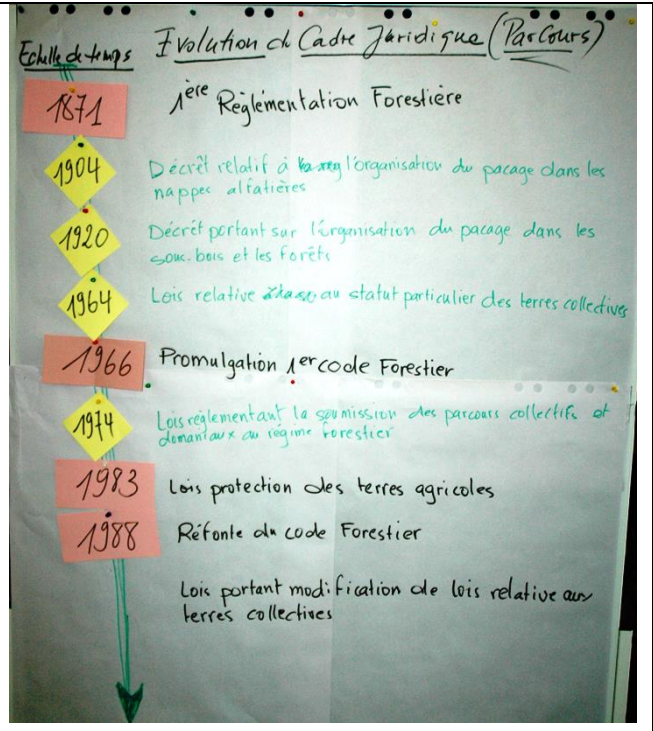 Evolution du Cadre Juridique (Parcours)
Echelle de temps
1871
1ère Règlementation Forestière
1904
Décrèt relatif à l'organisation du pacage dans les
nappes alfatières
1920
Décrèt portant sur l'organisation du pacage dans les
sous-bois et les forêts
1964
Lois relative au statut particulier des terres collectives
1966
Promulgation 1er code Forestier
1974
Lois réglementant la soumission des parcours collectifs et
domaniaux au régime forestier
1983
Lois protection des terres agricoles
1988
Réfonte du code Forestier
Lois portant modification de lois relative aux
terres collectives